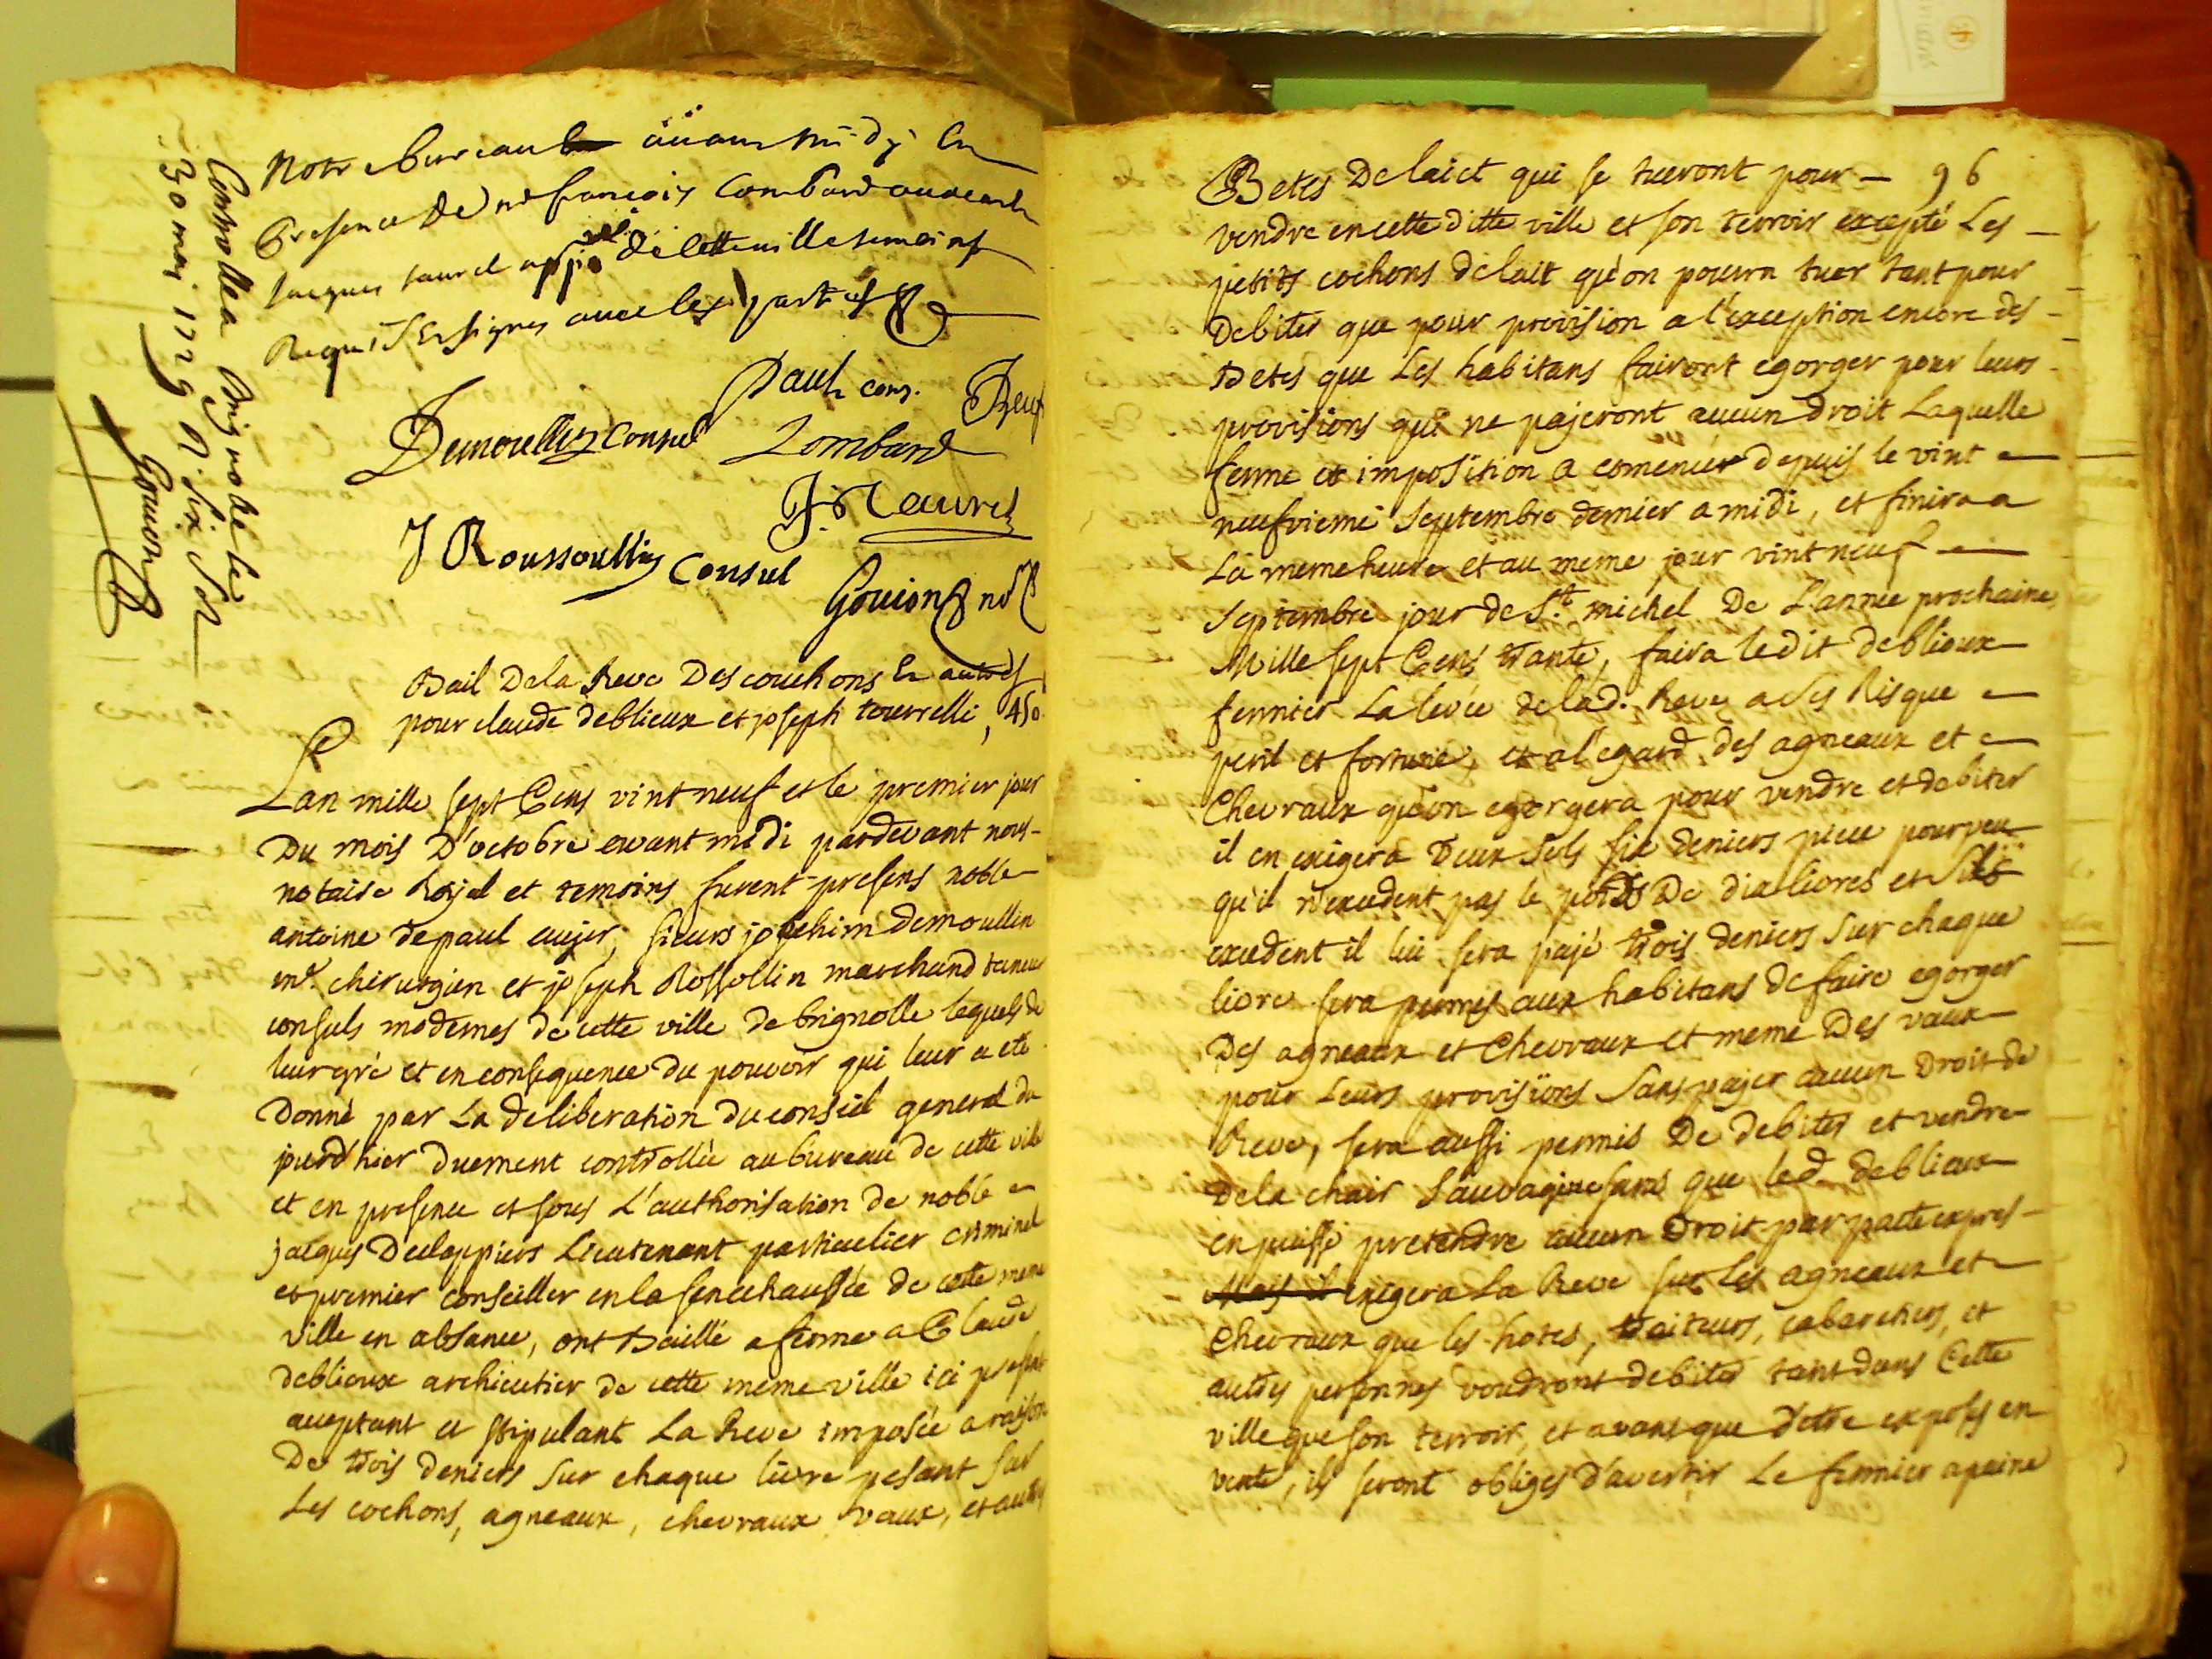 Notre bureau auant midy En
Presence de me françois Lombard
Jacques Laurel de cette ville temoins
Requis Et signes auec les parties
Paul cons.
Demoullin Consul
Lombard
J. Laurel
J Roussoullin Consul
Gouion no
Controllé a Brignolle le
30 may 1729 R. six sols
Gouion
Bail De la Reve Des couchons Et autres
pour claude deblieux et joseph tourrelli, 450
Lan mille sept Cens vint neuf et le premier jour
Du mois D'octobre avant midi pardevant nous
notaire Royal et temoins furent presens noble
antoine depaul eujer, sieurs joachim demoullin
me. chirurgien et joseph Rossollin marchand taneur
consuls modernes de cette ville de brignolle lequels de
leur gré et en consequence du pouvoir qui leur a eté
Donné par La deliberation du conseil general du
jourd'hier duement controllée au bureau de cette ville
et en presence et sous L'authorisation de noble
jacques Declappiers Lieutenant particulier criminel
et premier conseiller en la senechaussée de cette meme
ville en absance, ont Baillé a ferme a Claude
deblieux de cette meme ville ici present
aceptant et stipulant La Reve imposée a raison
De trois deniers sur chaque livre pesant sur
Les cochons, agneaux, chevraux, vaux, et autres
96
Betes De laict qui se tueront pour
vendre en cette ditte ville et son terroir excepté Les
petits cochons de lait qu'on pourra tuer tant pour
Debiter que pour provision a l'exception encore des
Betes que Les habitans fairont egorger pour leurs
provisions qui ne pajeront aucun droit Laquelle
ferme et imposition a comencér depuis le vint
neufvieme Septembre dernier a midi, et finira a
La meme heure et au meme jour vint neuf
Septembre jour de St. michel De L'année prochaine
Mille sept Cens trante, faira ledit deblieux
fermier La levée de lad. Reve a ses Risque
peril et fortune, et a l'egard des agneaux et
Chevraux qu'on egorgera pour vendre et debiter
il en exigera Deux Sols six deniers piece pourveu
qu'il n'excedent pas le poids De dix livres et Sils
excedent il lui sera pajé trois deniers sur chaque
livre sera permis aux habitans de faire egorger
Des agneaux et Chevraux et meme Des vaux
pour Leurs provisions Sans pajer aucun Droit de
Reve, sera aussi permis De debiter et vendre
De la chair Sauvagine sans que led. deblieux
en puisse pretendre aucun Droit par pacte expres
Mais il exigera La Reve sur Les agneaux et
Chevraux que les hotes, traiteurs, cabaretiers, et
autres personnes voudront debiter tant dans Cette
ville que son terroir, et avant que d'etre exposés en
vente, ils seront obligés d'avertir Le fermier a peine